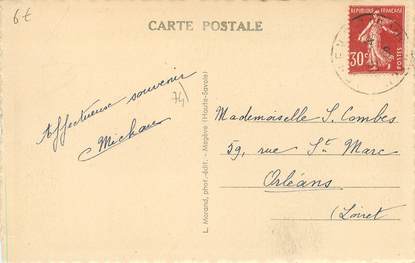 6€
CARTE POSTALE
RÉPUBLIQUE FRANÇAISE
30c
POSTES
Affectueux souvenir
74
Mademoiselle S. Combes
59, rue St Marc
Orléans
(Loiret
L. Morand, phot.-édit. - Megève (Haute-Savoie)